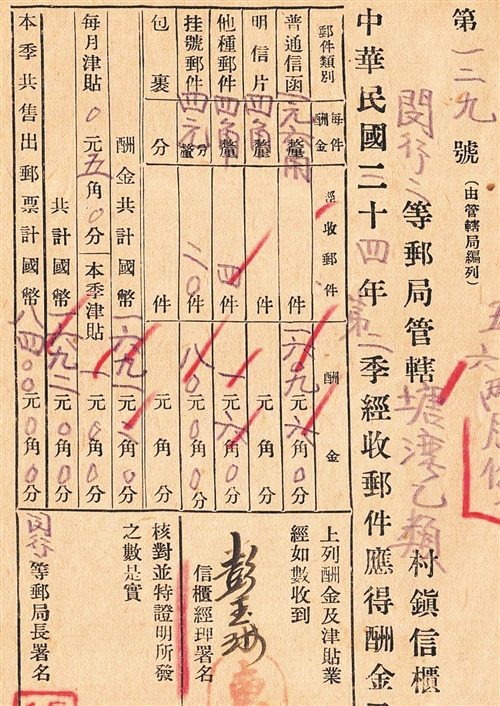 第一二九號(由管轄局編列)
五六兩月份
閔行之等郵局管轄塘灣乙類村鎮信櫃
中華民國二十四年第二季經收郵件應得酬金
郵件類別 每件酬金 經收郵件 酬金
普通信函 釐 件 元九角六分0
明信片 四角 釐 件 元角分
他種郵件 四角 釐 四件 一元六角0分
挂號郵件 四元 分釐 二0件 八元0角0分
包裹 分 件 元角分
酬金共計國幣 元二角0分
每月津貼0元五角0分 本季津貼一元0角0分
共計國幣 元二角0分
本季共售出郵票計國幣八四元0角0分
上列酬金及津貼業
經如數收到
信櫃經理署名
彭玉
核對並特證明所發
之數是實
閔行等郵局長署名